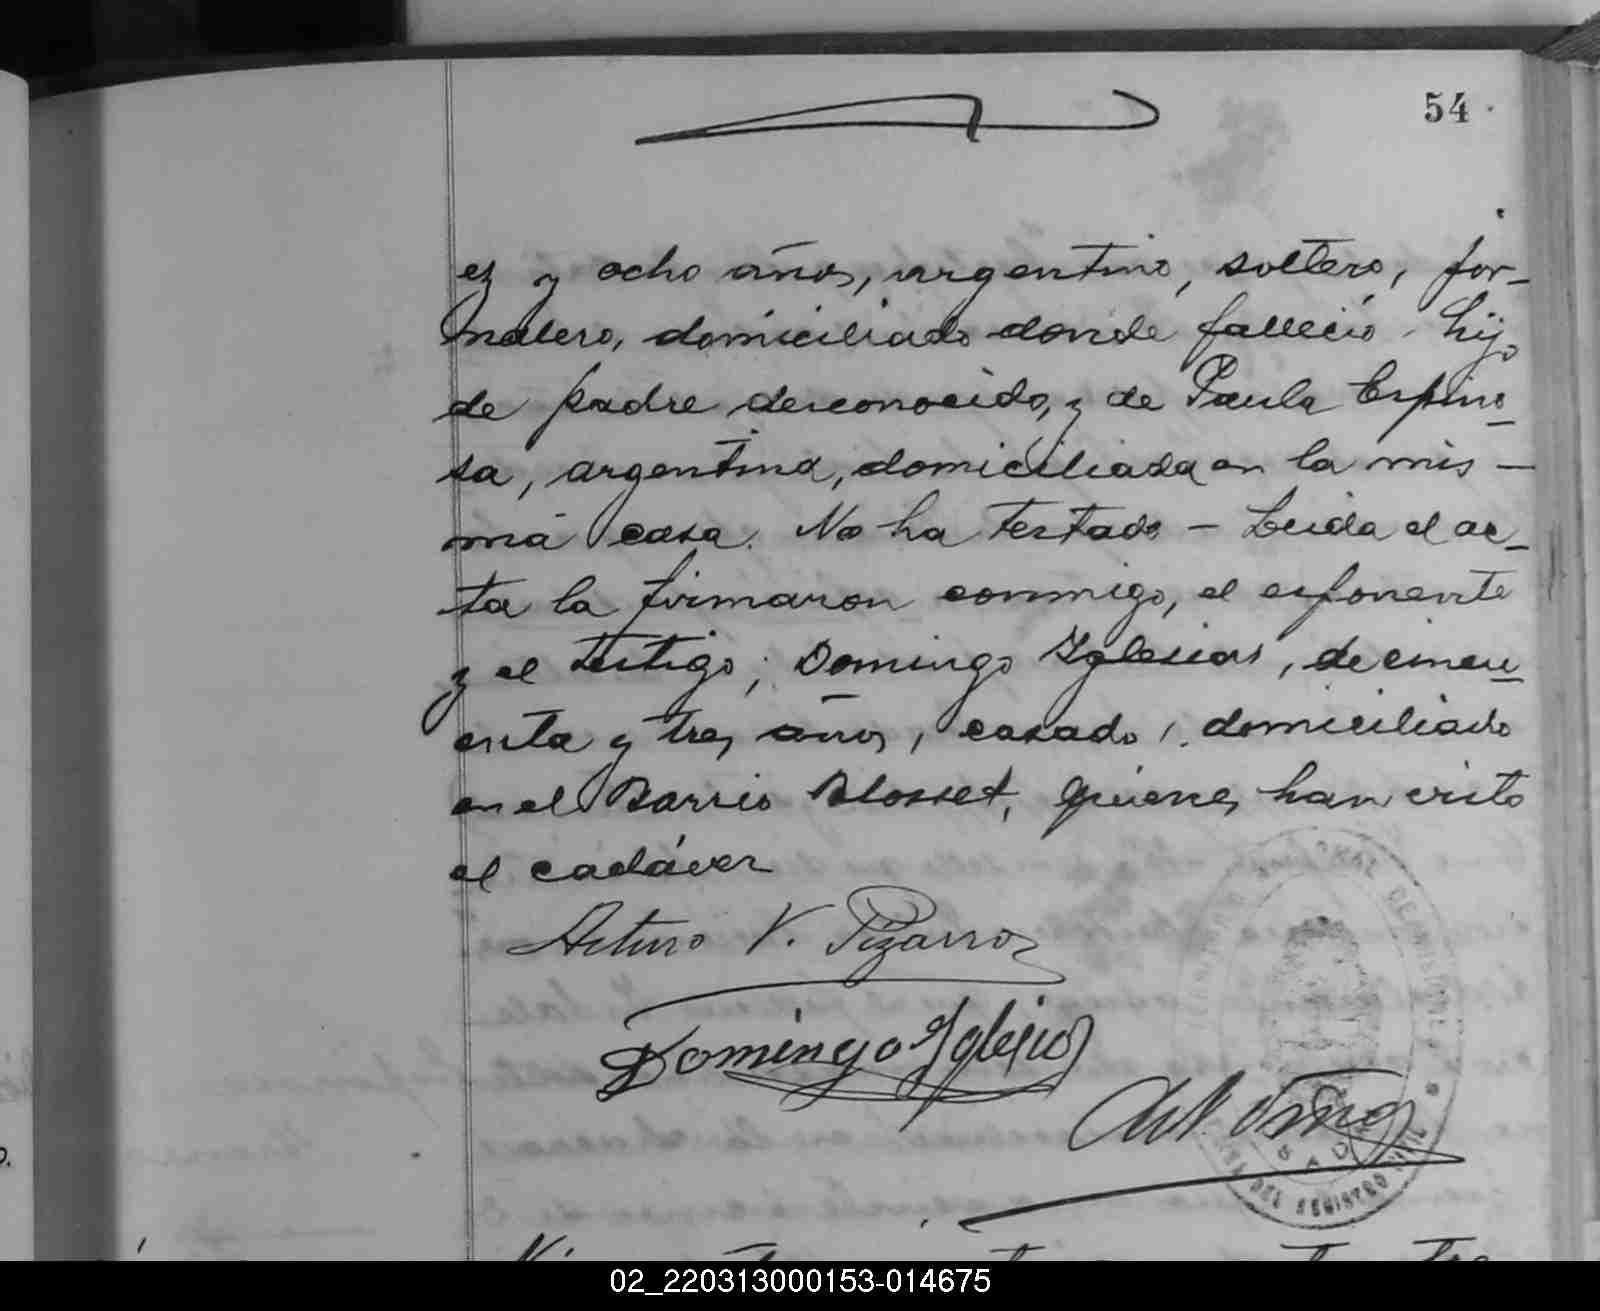 54
ez y ocho años, argentino, soltero, jor-
nalero, domiciliado donde falleció, hijo
de padre desconocido, y de Paula Espino-
sa, argentina, domiciliada en la mis-
ma casa. No ha testado - Leida el ac-
ta la firmaron conmigo, el exponente
y el testigo; Domingo Iglesias, de cincu-
enta y tres años, casado, domiciliado
en el Barrio Blosset, quienes han visto
el cadáver
Arturo V. Pizarro
Domingo Iglesias
DEL REGISTRO CIVIL
02_220313000153-014675